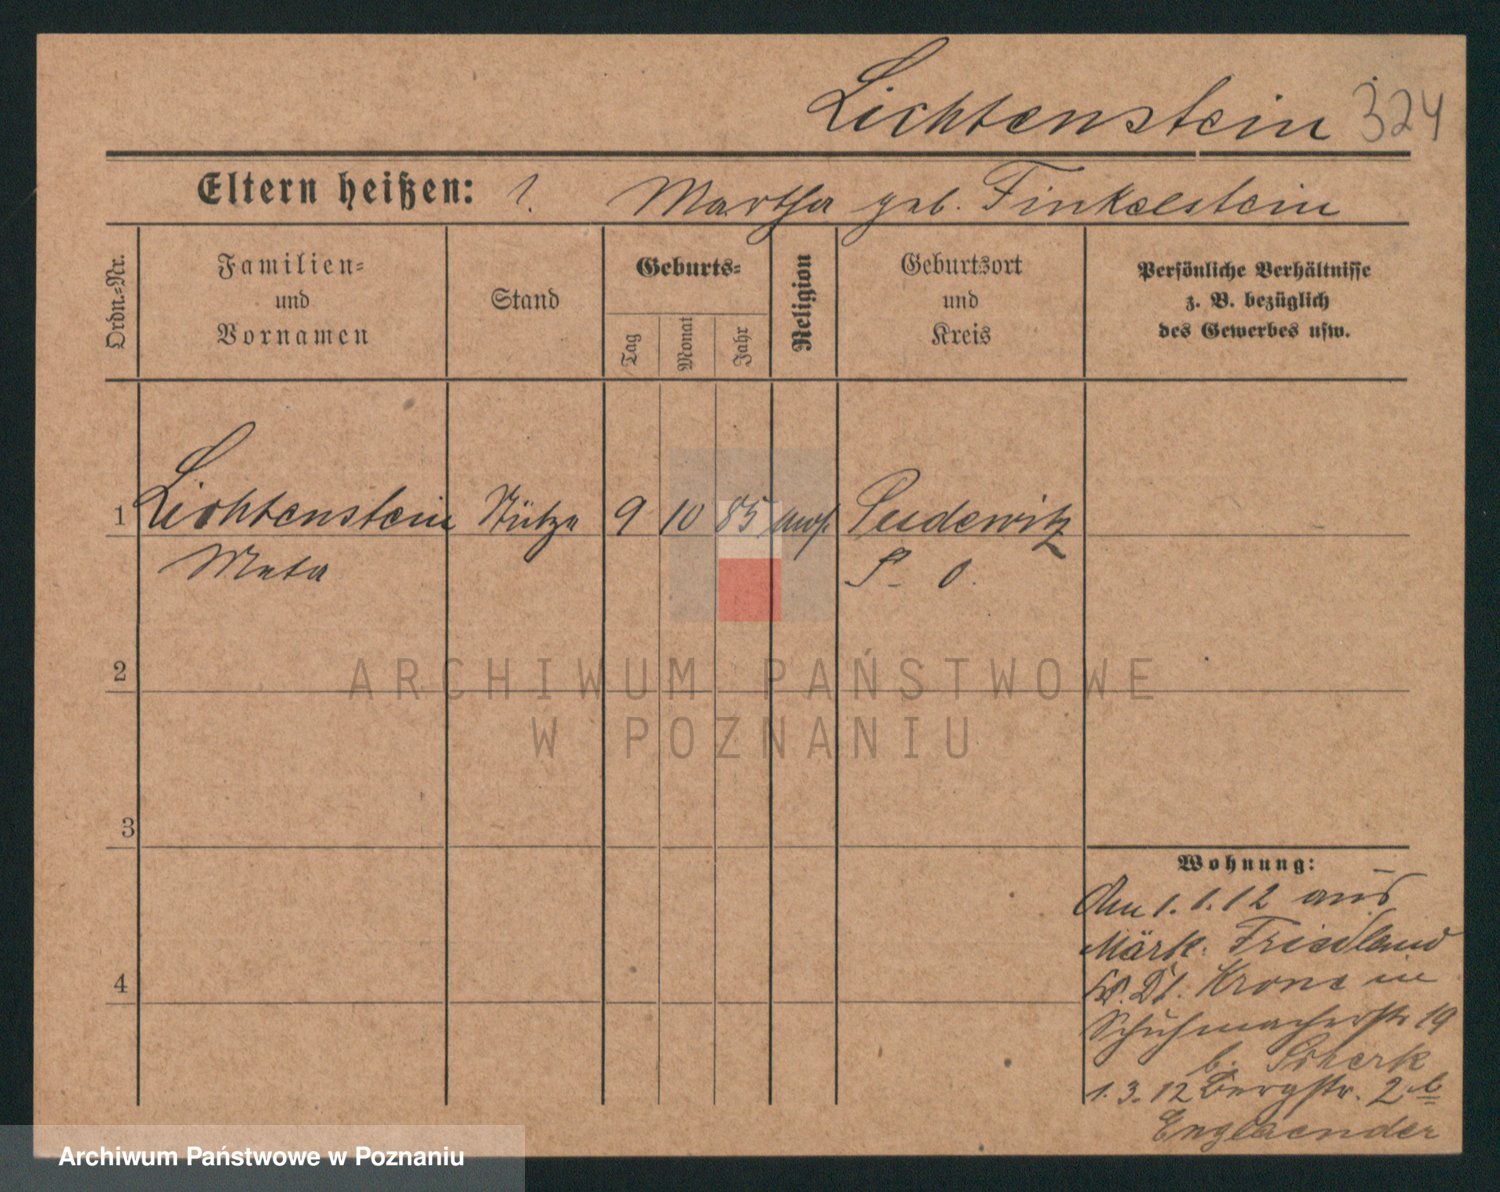 Lichtenstein 324
Eltern heißen: ?. Martha geb. Finkelstein
Ordn.-Nr.
Familien-
und
Vornamen
Stand
Geburts-
Tag
Monat
Jahr
Religion
Geburtsort
und
Kreis
Persönliche Verhältnisse
z. B. bezüglich
des Gewerbes usw.
1 Lichtenstein Stütze 9 10 85 mos. Pudewitz
Meta P. O.
2
ARCHIWUM PAŃSTWOWE
W POZNANIU
3
Wohnung:
Am 1.1.12 aus
Märk. Friedland
Kr. Dt. Krone in
4
Schuhmacherstr 19
b.
1.3.12 Bergstr. 2b
Englaender
Archiwum Państwowe w Poznaniu